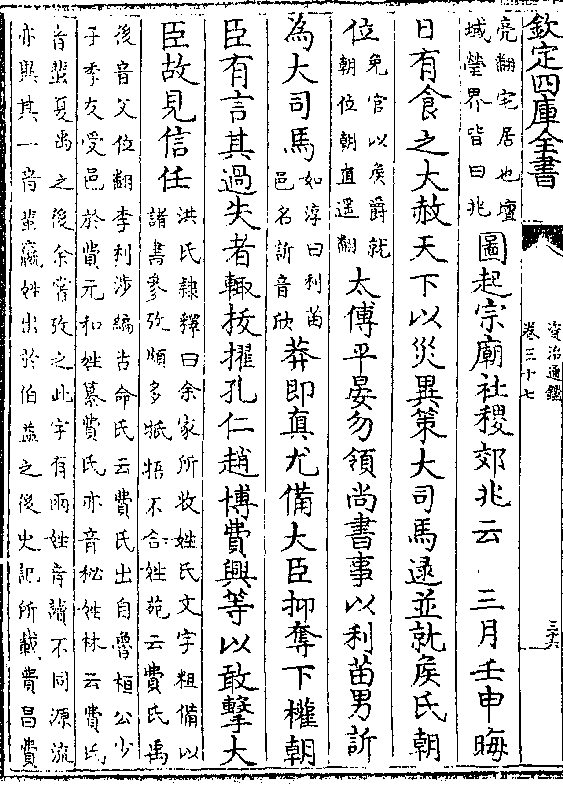 欽定四庫全書
資治通鑑
卷三十七
三六
亮翻宅居也壇
域塋界皆曰兆
圖起宗廟社稷郊兆云　三月壬申晦
日有食之大赦天下以災異策大司馬逯並就矦氏朝
位
免官以矦爵就
朝位朝直遥翻
太傅平晏勿領尚書事以利苗男訢
為大司馬
如淳曰利苗
邑名訢音欣
莽即真尤備大臣抑奪下權朝
臣有言其過失者輙拔擢孔仁趙博費興等以敢擊大
臣故見信任
洪氏隷釋曰余家所收姓氏文字粗備以
諸書參攷頗多牴牾不合姓苑云費氏禹
後音父位翻李利涉編古命氏云費氏出自魯桓公少
子季友受邑於費元和姓纂費氏亦音秘姓林云費氏
音蜚夏禹之後余嘗攷之此字有兩姓音讀不同源流
亦異其一音蜚嬴姓出於伯益之後史記所載費昌費